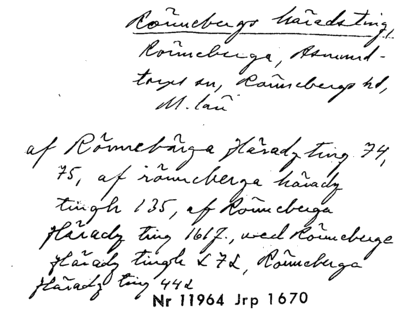 Rönnebergs häradsting,
Rönneberga, Asmund-
torps sn, Rönnebergs hd,
M. län
af Rönnebärga Häradz ting 74,
75, af rönneberga häradz
tingh 135, af Rönneberga
Häradz ting 167., wed Rönneberge
Häradz tingh 272, Rönneberga
Häradz ting 442
Nr 11964 Jrp 1670